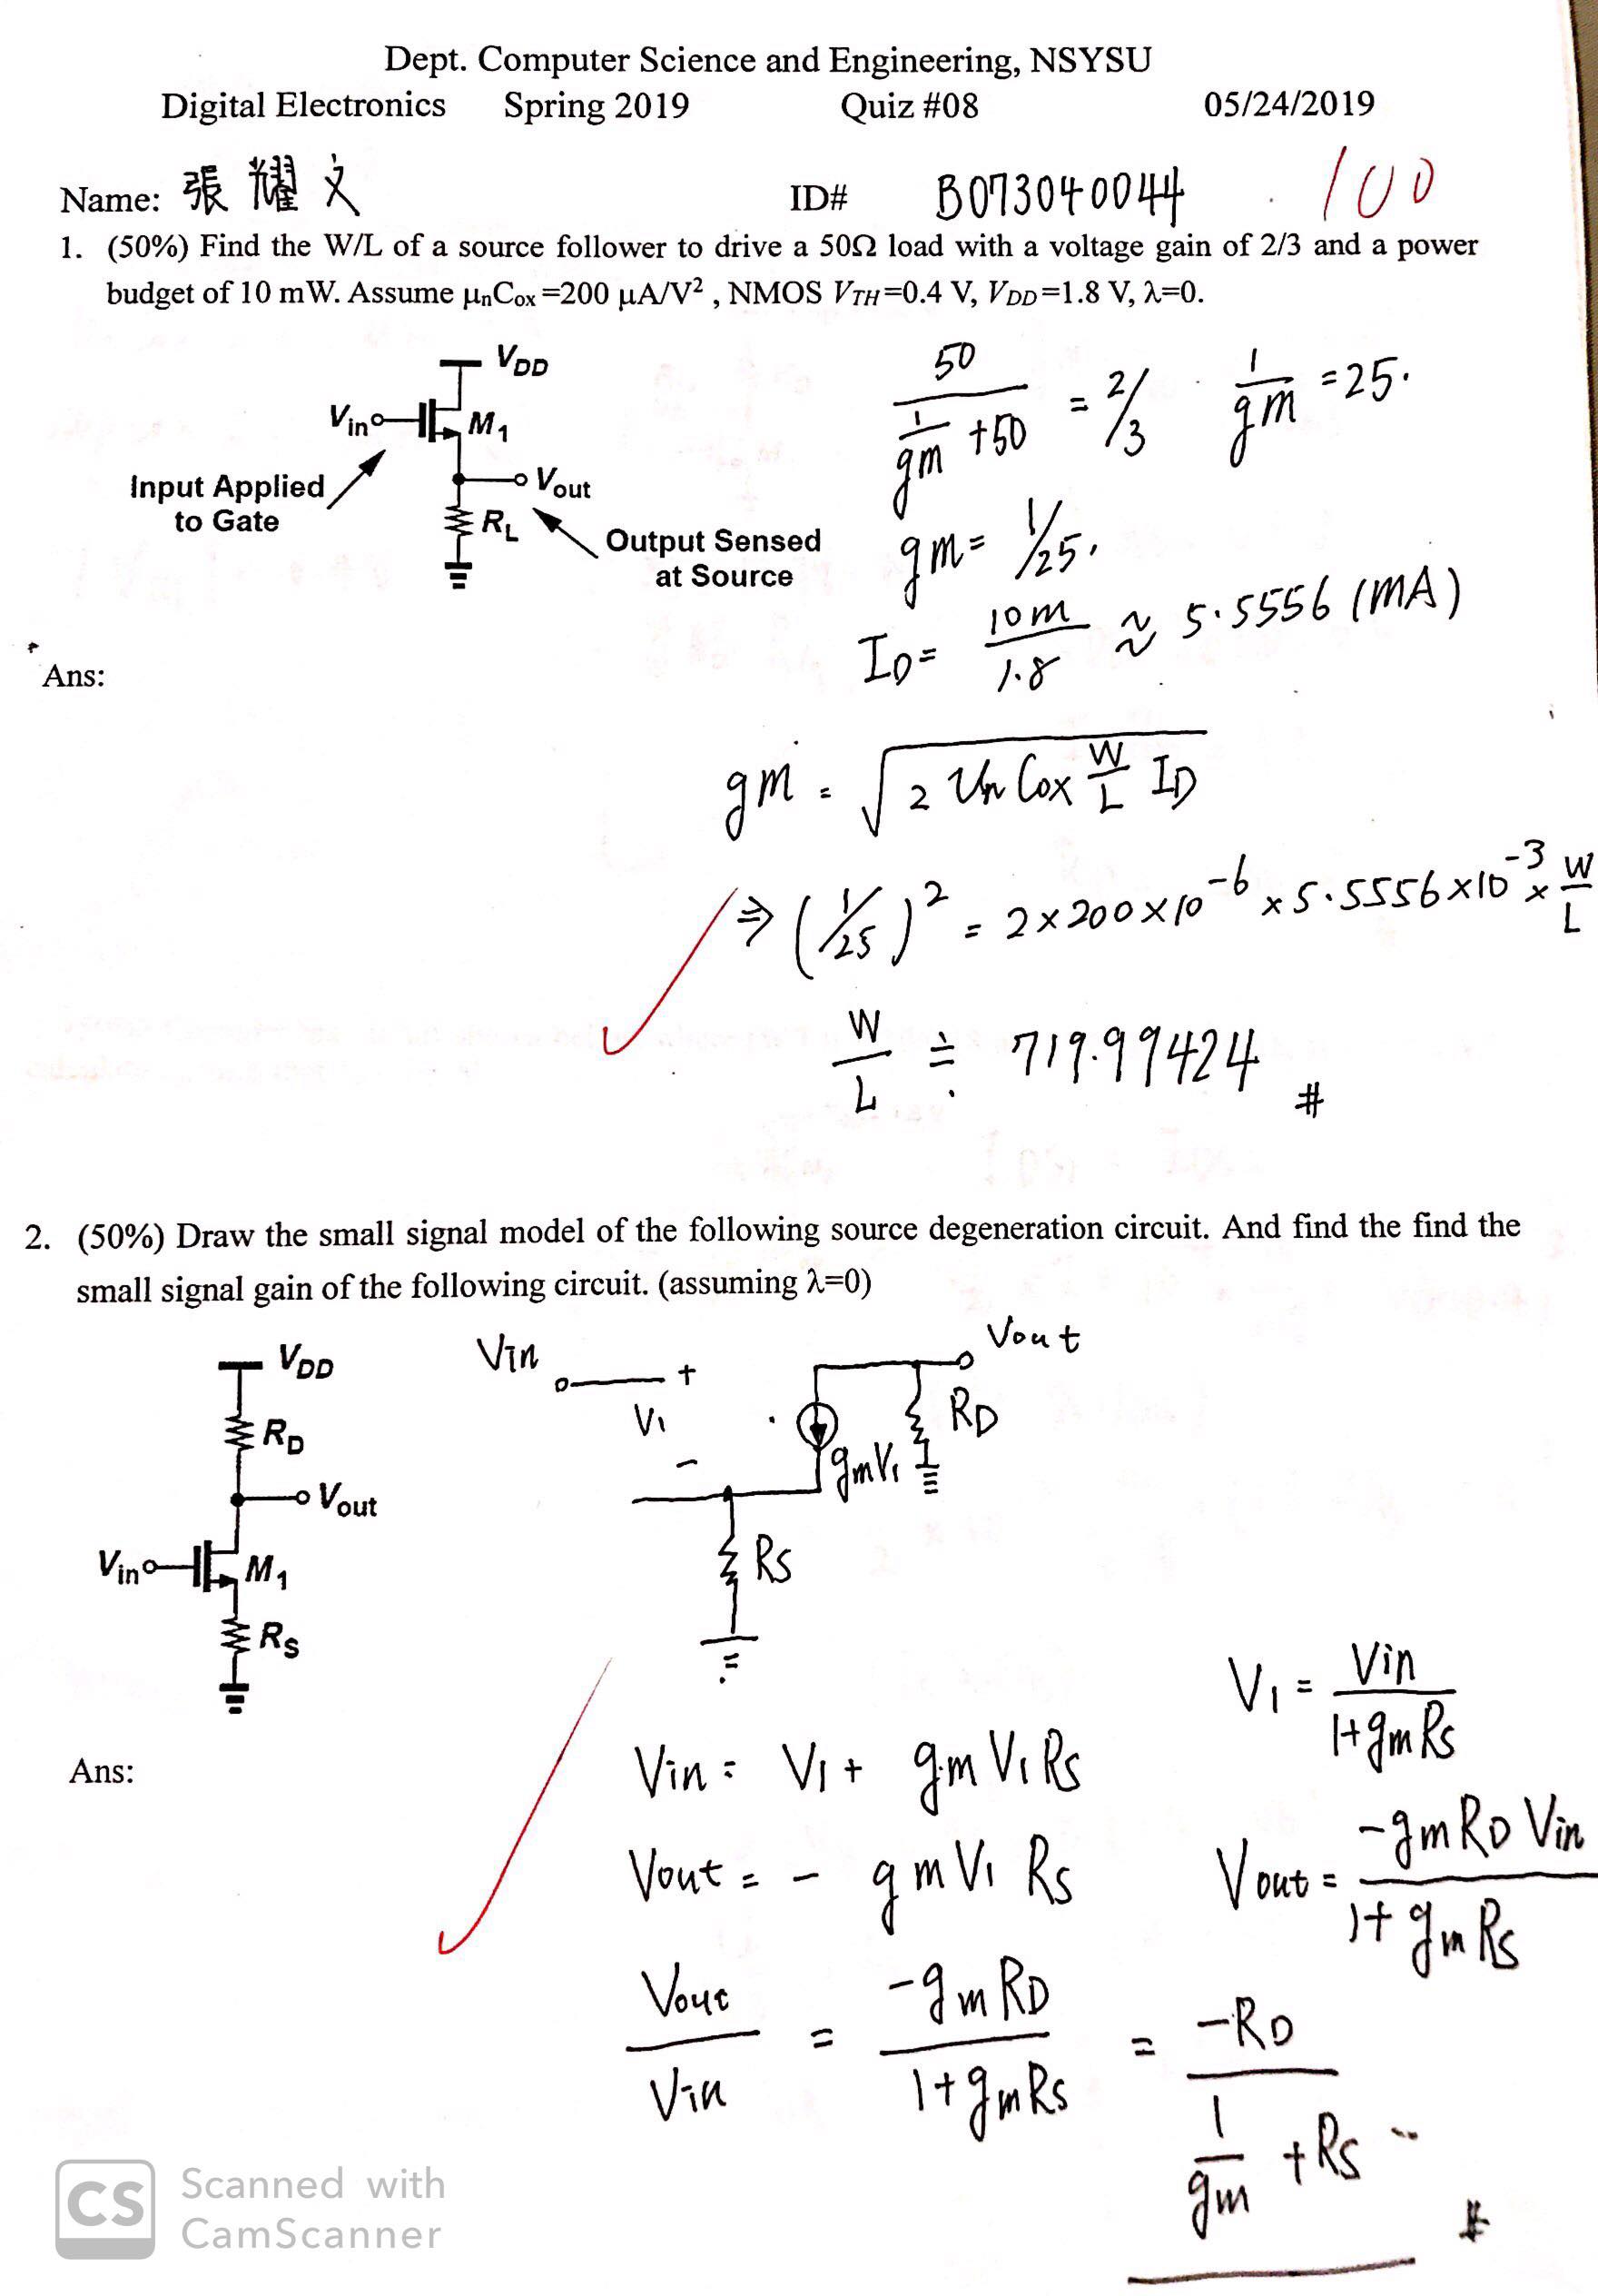 Dept. Computer Science and Engineering, NSYSU
Digital Electronics Spring 2019 Quiz #08 05/24/2019
Name: 張耀文 ID# B073040044 100
1. (50%) Find the W/L of a source follower to drive a 50Ω load with a voltage gain of 2/3 and a power
budget of 10 mW. Assume μnCox =200 μA/V² , NMOS VTH=0.4 V, VDD=1.8 V, λ=0.
VDD
Vin M1
Input Applied
to Gate
Vout
RL
Output Sensed
at Source
50 / (1/gm + 50) = 2/3 1/gm = 25.
gm = 1/25.
ID = 10m / 1.8 ≈ 5.5556 (mA)
Ans:
gm = √(2 Un Cox W/L ID)
⇒ (1/25)² = 2×200×10⁻⁶ × 5.5556×10⁻³ × W/L
W/L ≒ 719.99424 #
2. (50%) Draw the small signal model of the following source degeneration circuit. And find the find the
small signal gain of the following circuit. (assuming λ=0)
VDD
RD
Vout
Vin M1
RS
Vin + Vout
V1
-
gmV1 RD
RS
Ans:
Vin = V1 + gm V1 Rs
V1 = Vin / (1+gmRs)
Vout = - gm V1 Rs
Vout = -gmRD Vin / (1+gmRs)
Vout / Vin = -gmRD / (1+gmRs) = -RD / (1/gm + Rs) #
CS Scanned with
CamScanner